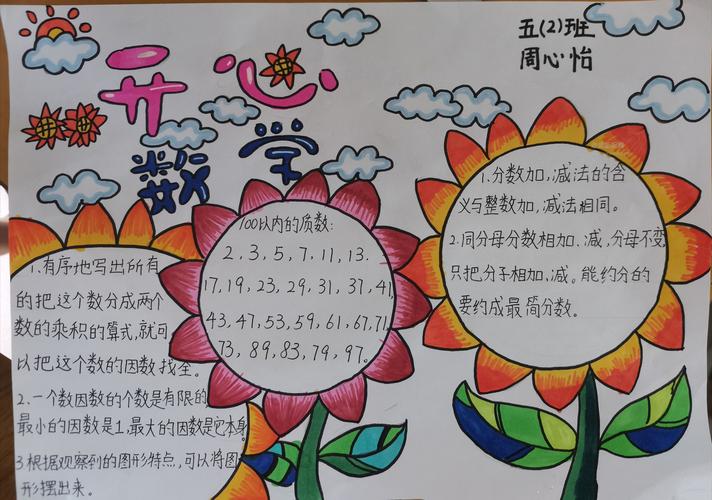 五(2)班
周心怡
开心
数学
1.有序地写出所有
的把这个数分成两个
数的乘积的算式,就可
以把这个数的因数找全。
2.一个数因数的个数是有限的
最小的因数是1,最大的因数是它本身
3.根据观察到的图形特点,可以将图
形摆出来。
100以内的质数:
2,3,5,7,11,13.
17,19,23,29,31,37,41
43,47,53,59,61,67,71
73,89,83,79,97。
1.分数加,减法的含
义与整数加,减法相同。
2.同分母分数相加、减,分母不变
只把分子相加、减。能约分的
要约成最简分数。